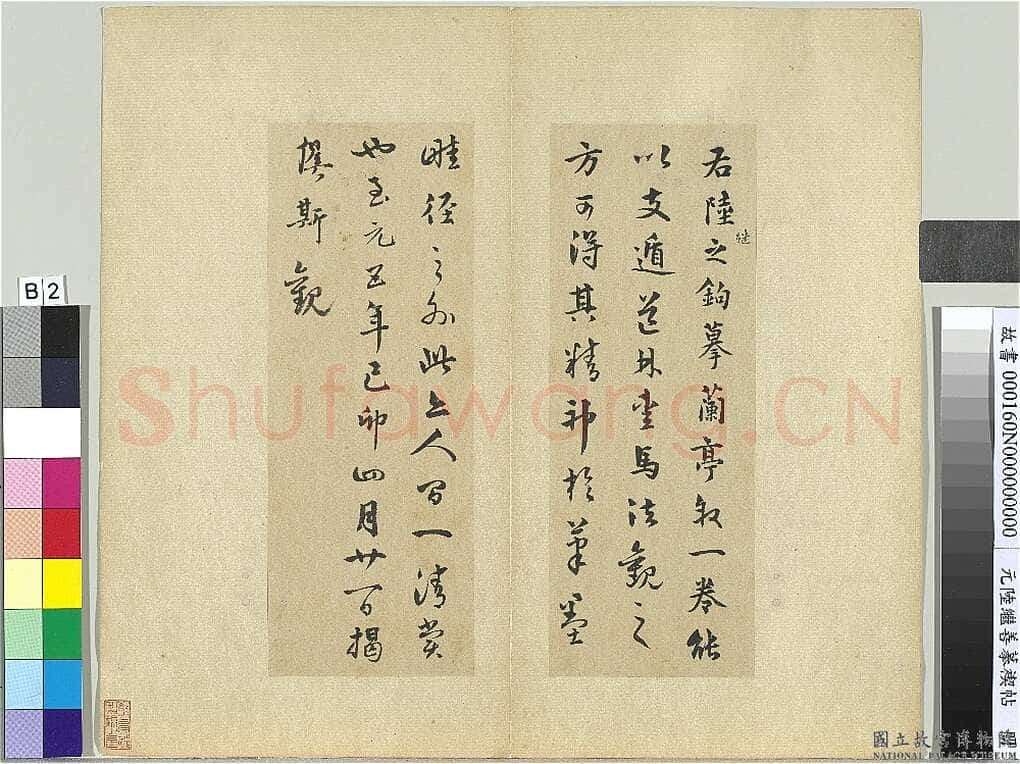 右陸継之鉤摹蘭亭叙一卷能
以支遁道林愛馬法觀之
方可得其精神於筆墨
畦徑之外此亦人間一清賞
也至元五年己卯四月廿一日揭
傒斯觀
Shufawang.CN
B2
故書 000160N000000000
元陸繼善摹禊帖
國立故宮博物院
NATIONAL PALACE MUSEUM